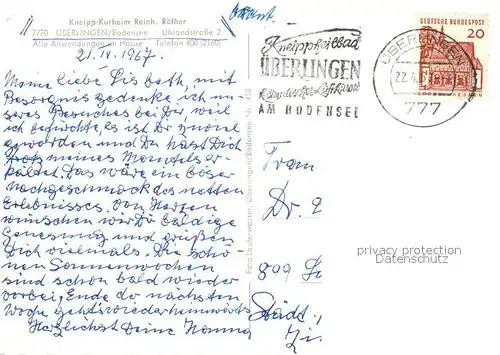 Kneipp-Kurheim Reinh. Röther
7770 ÜBERLINGEN/Bodensee Uhlandstraße 2
Alle Anwendungen im Hause Telefon 400 (2160)
21. IV. 1967.
Meine liebe Lisbeth, mit
Besorgnis gedenke ich un-
seres Besuches bei Dir, weil
ich befürchte, es ist Dir zuviel
geworden und Du hast Dich
trotz meines Mantels er-
kältet. Das wäre ein böser
Nachgeschmack des netten
Erlebnisses. Von Herzen
wünschen wir Dir baldige
Genesung und grüßen
Dich vielmals. Die schö-
nen Sonnenwochen
sind schon bald wieder
vorbei, Ende der nächsten
Woche geht's wieder heimwärts
Herzlichst Deine Hanna
Foto Lauterwasser, Überlingen/Bodensee Nr. 450
Kneippheilbad
ÜBERLINGEN
AM BODENSEE
ÜBERLINGEN
22. 4.
777
DEUTSCHE BUNDESPOST
20
Frau
Dr.
privacy protection
Datenschutz
899 Li
Städt.